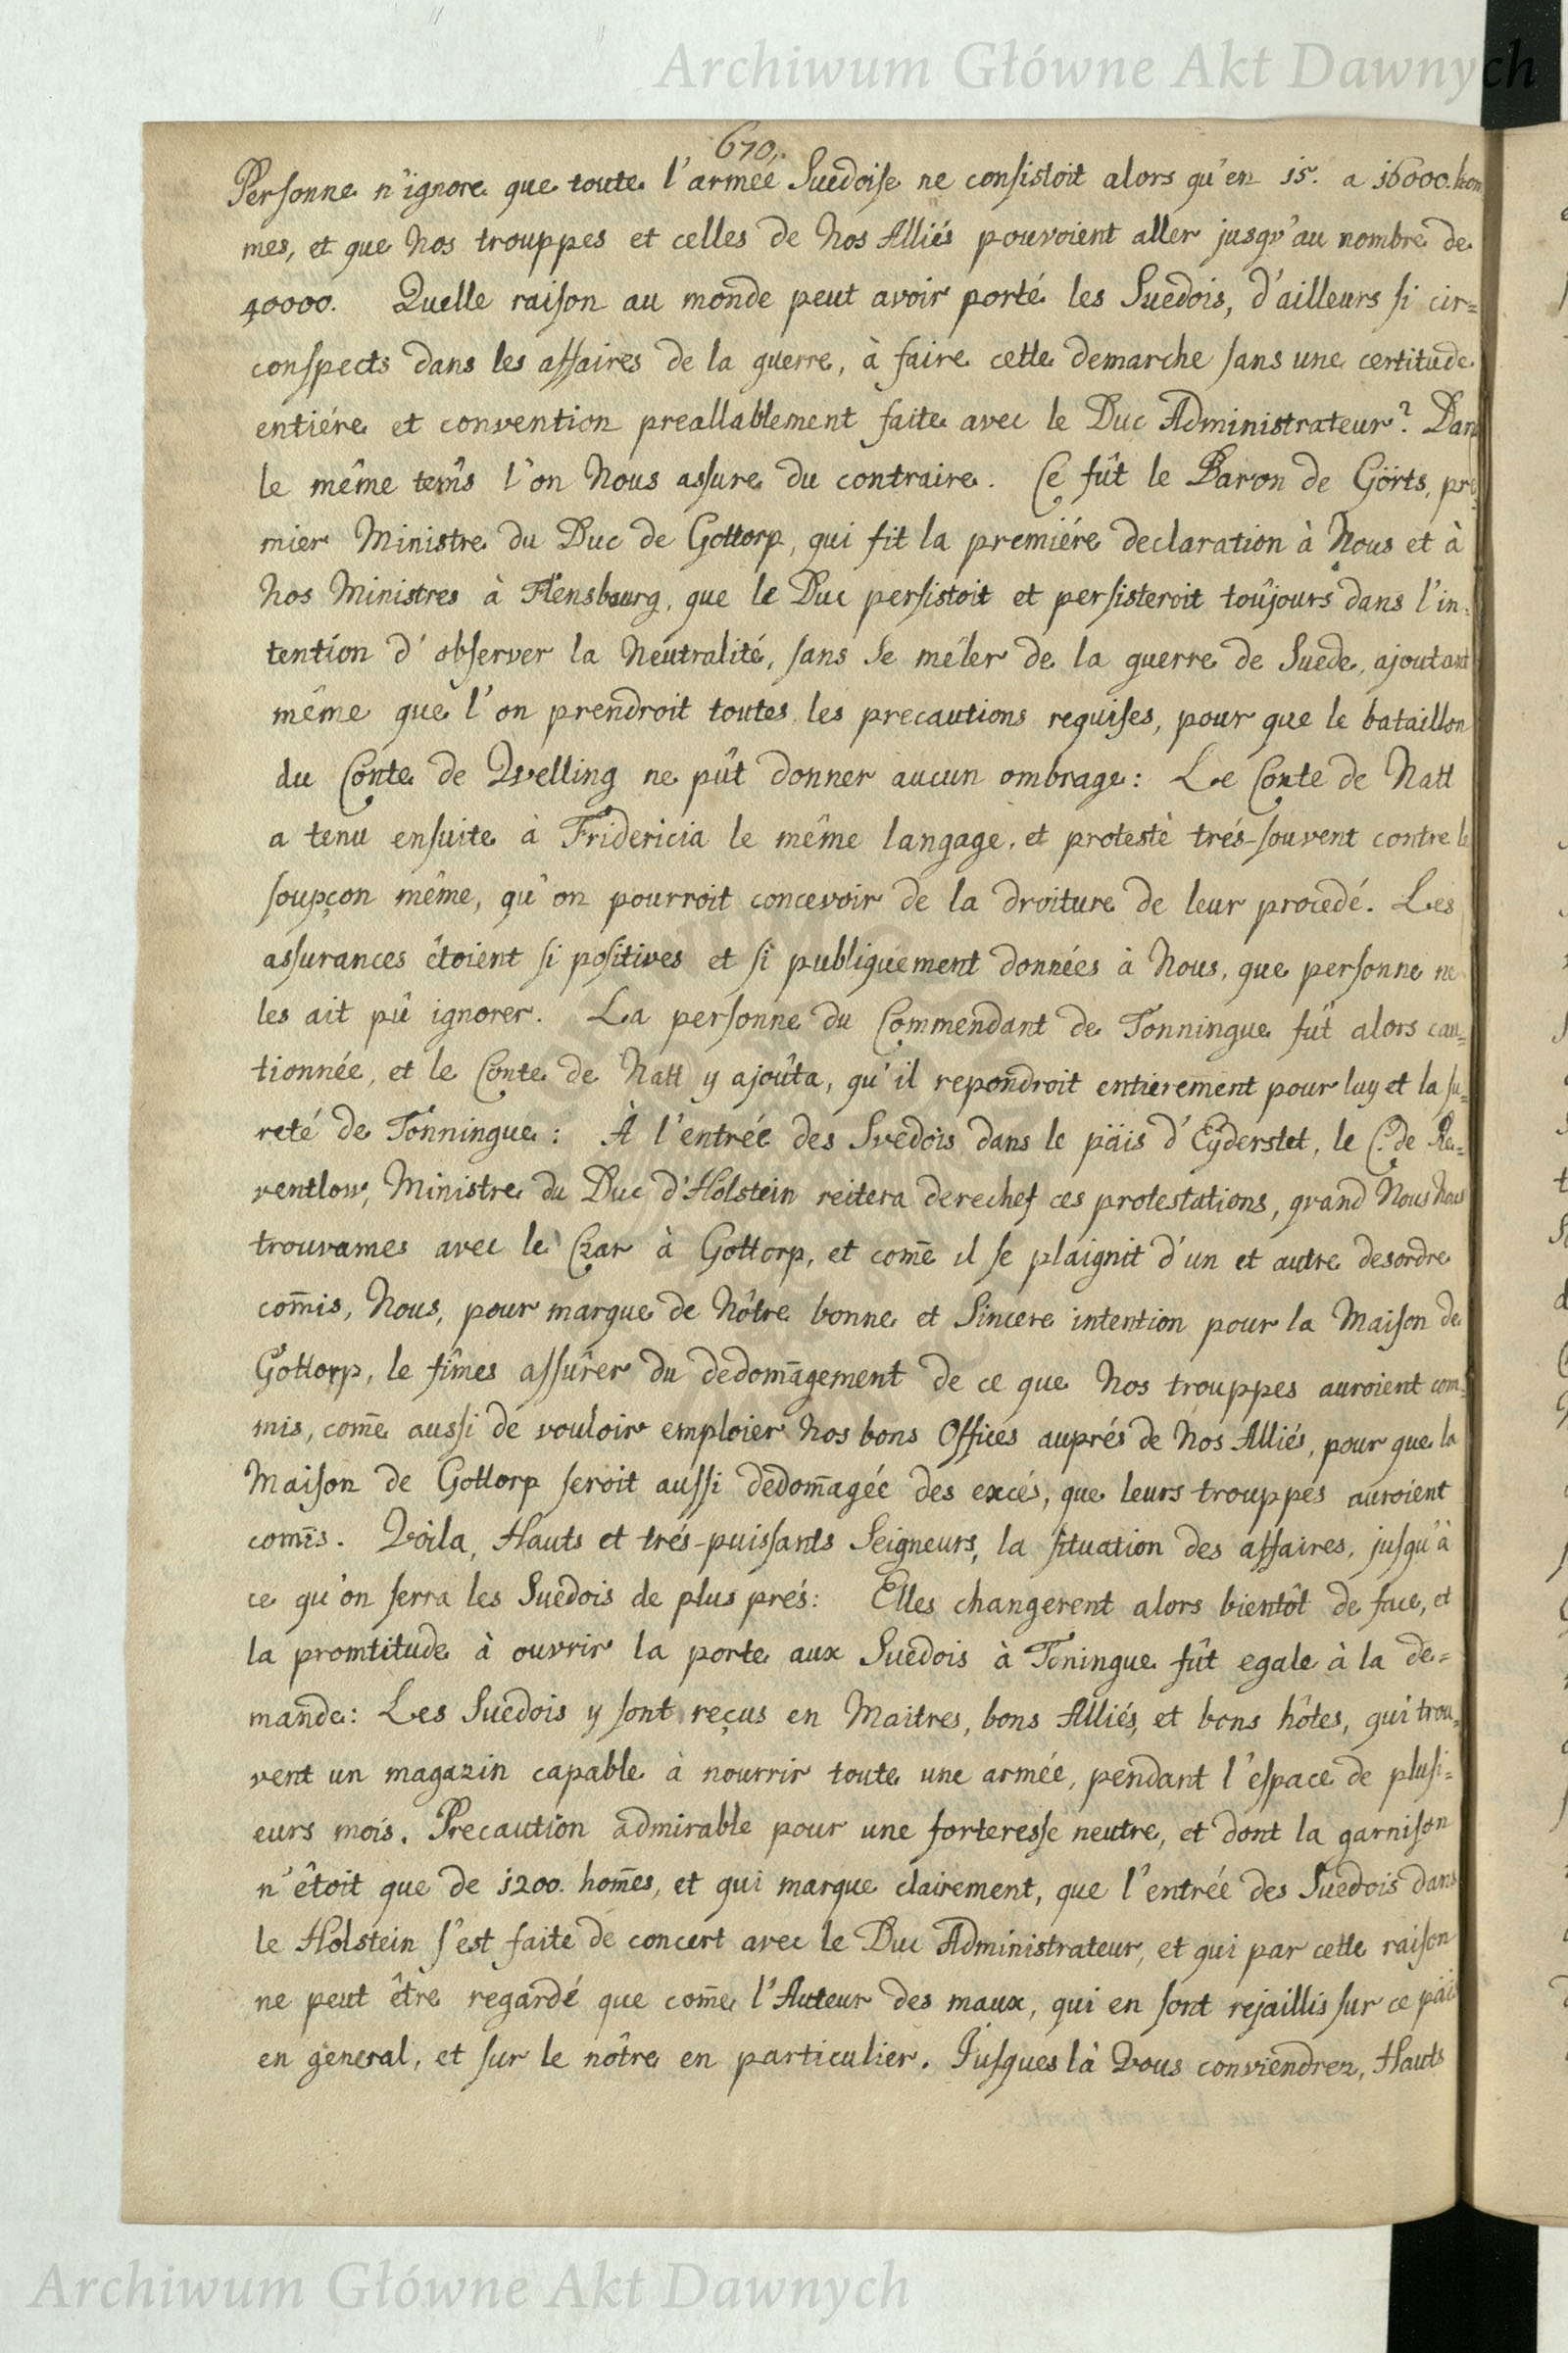 Archiwum Główne Akt Dawnych
670.
Personne n'ignore que toute l'armée Suedoise ne consistoit alors qu'en 15. a 16000. hom
mes, et que Nos trouppes et celles de Nos Alliés pouvoient aller jusqu'au nombre de
40000. Quelle raison au monde peut avoir porté les Suedois, d'ailleurs si cir=
conspects dans les affaires de la guerre, à faire cette demarche sans une certitude
entiére et convention preallablement faite avec le Duc Administrateur? Dans
le même tems l'on Nous assure du contraire. Ce fût le Baron de Görts, pre
mier Ministre du Duc de Gottorp, qui fit la premiére declaration à Nous et à
Nos Ministres à Flensbourg, que le Duc persistoit et persisteroit toûjours dans l'in=
tention d'observer la Neutralité, sans se méler de la guerre de Suede, ajoutant
même que l'on prendroit toutes les precautions requises, pour que le bataillon
du Conte de Welling ne pût donner aucun ombrage: Le Conte de Natt
a tenu ensuite à Fridericia le même langage, et protesté trés-souvent contre le
soupçon même, qu'on pourroit concevoir de la droiture de leur procedé. Les
assurances êtoient si positives et si publiquement données à Nous, que personne ne
les ait pû ignorer. La personne du Commendant de Tonningue fût alors cau=
tionnée, et le Conte de Natt y ajoûta, qu'il repondroit entierement pour luy et la su=
reté de Tonningue: À l'entrée des Svedois dans le päis d'Eÿderstet, le C. de Re=
ventlow, Ministre du Duc d'Holstein reitera derechef ces protestations, quand Nous Nous
trouvames avec le Czar à Gottorp, et com̄e il se plaignit d'un et autre desordre
com̄is, Nous, pour marque de Nôtre bonne et Sincere intention pour la Maison de
Gottorp, le fîmes assûrer du dedom̄agement de ce que Nos trouppes auroient com=
mis, com̄e aussi de vouloir emploier Nos bons Offices auprés de Nos Alliés, pour que la
Maison de Gottorp seroit aussi dedom̄agée des excés, que leurs trouppes auroient
com̄is. Voila, Hauts et trés-puissants Seigneurs, la situation des affaires, jusqu'à
ce qu'on serra les Suedois de plus prés: Elles changerent alors bientôt de face, et
la promtitude à ouvrir la porte aux Suedois à Toningue fût egale à la de=
mande: Les Suedois y sont reçus en Maitres, bons Alliés, et bons hôtes, qui trou=
vent un magazin capable à nourrir toute une armée, pendant l'espace de plusi=
eurs mois. Precaution admirable pour une forteresse neutre, et dont la garnison
n'êtoit que de 1200. hom̄es, et qui marque clairement, que l'entrée des Suedois dans
le Holstein s'est faite de concert avec le Duc Administrateur, et qui par cette raison
ne peut être regardé que com̄e l'Auteur des maux, qui en sont rejaillis sur ce päis
en general, et sur le nôtre en particulier. Jusques là Vous conviendrez, Hauts
Archiwum Główne Akt Dawnych